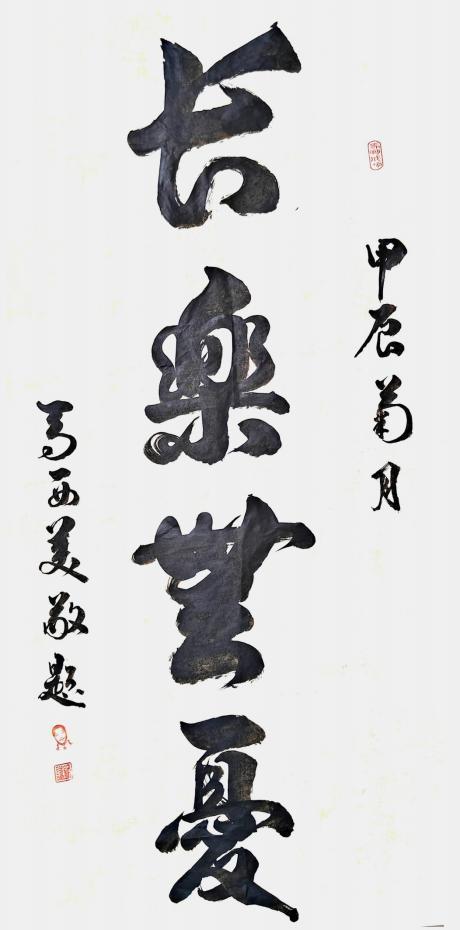 甲辰菊月
长樂無憂
马西美敬题